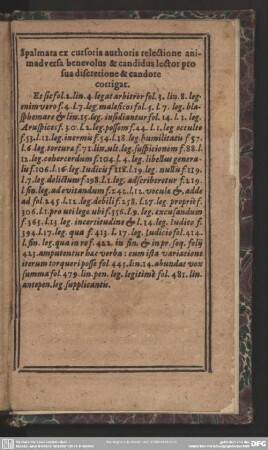 Spalmata ex cursoria authoris relectione ani-
madversa benevolus & candidus lector pro
sua discretione & candore
corrigat.
Et sic fol. 2. lin. 4. legat arbitror fol. 3. lin. 8. leg.
enim vero f. 4. l. 7. leg. maleficos fol. 5. l. 7. leg. bla-
sphemare & lin. 15. leg. insidiantur fol. 14. l. 2. leg.
Aruspices f. 30. l. 2. leg. possem f. 44. l. 1. leg. occulte
f. 53. l. 12. leg. inermis f. 54. l. 28. leg. humilitatis f. 57.
l. 6. leg. tortura f. 73. lin. ult. leg. suspicionem f. 88. l.
12. leg. cohercendum f. 104. l. 4. leg. libellus genera-
lis f. 106. l. 16. leg. Iudicis f. 118. l. 19. leg. nullis f. 129.
l. 7. leg. delictum f. 198. l. 2. leg. adscriberetur f. 219.
l. fin. leg. ad evitandum f. 242. l. 12. vocula &, adde
ad fol. 245. l. 12. leg. debili f. 258. l. 27. leg. proprie f.
306. l. 1. pro uti lega ubi f. 356. l. 9. leg. excusandum
f. 365. l. 13. leg. incertitudine & l. 14. leg. Iudico f.
394. l. 17. leg. qua f. 413. l. 27. leg. Iudicio fol. 414.
l. fin. leg. qua in ref. 422. in fin. & in pr. seq. folij
423. amputentur hac verba: cum ista variatione
iterum torqueri posse fol. 445. lin. 14. abundat vox
summa fol. 479. lin. pen. leg. legitimè fol. 481. lin.
antepen. leg. supplicantis.